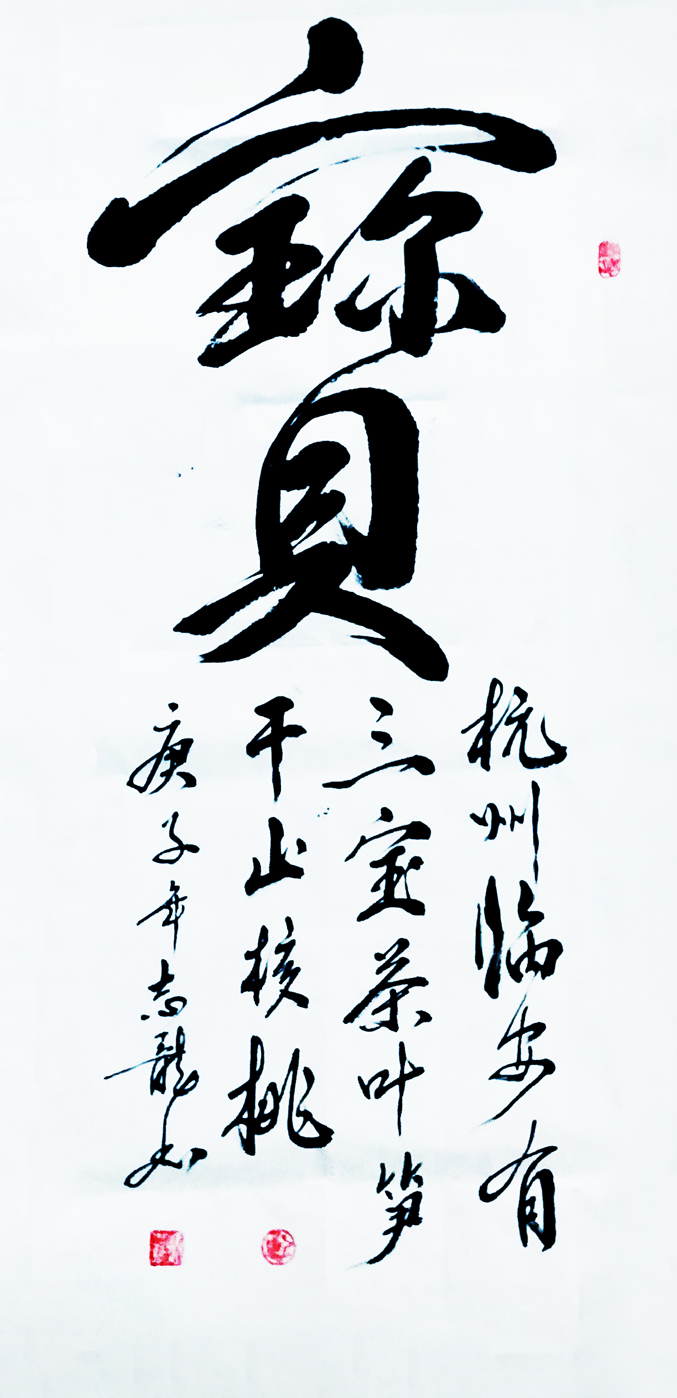 寳
杭州临安有
三宝茶叶笋
干山核桃
庚子年志龍书